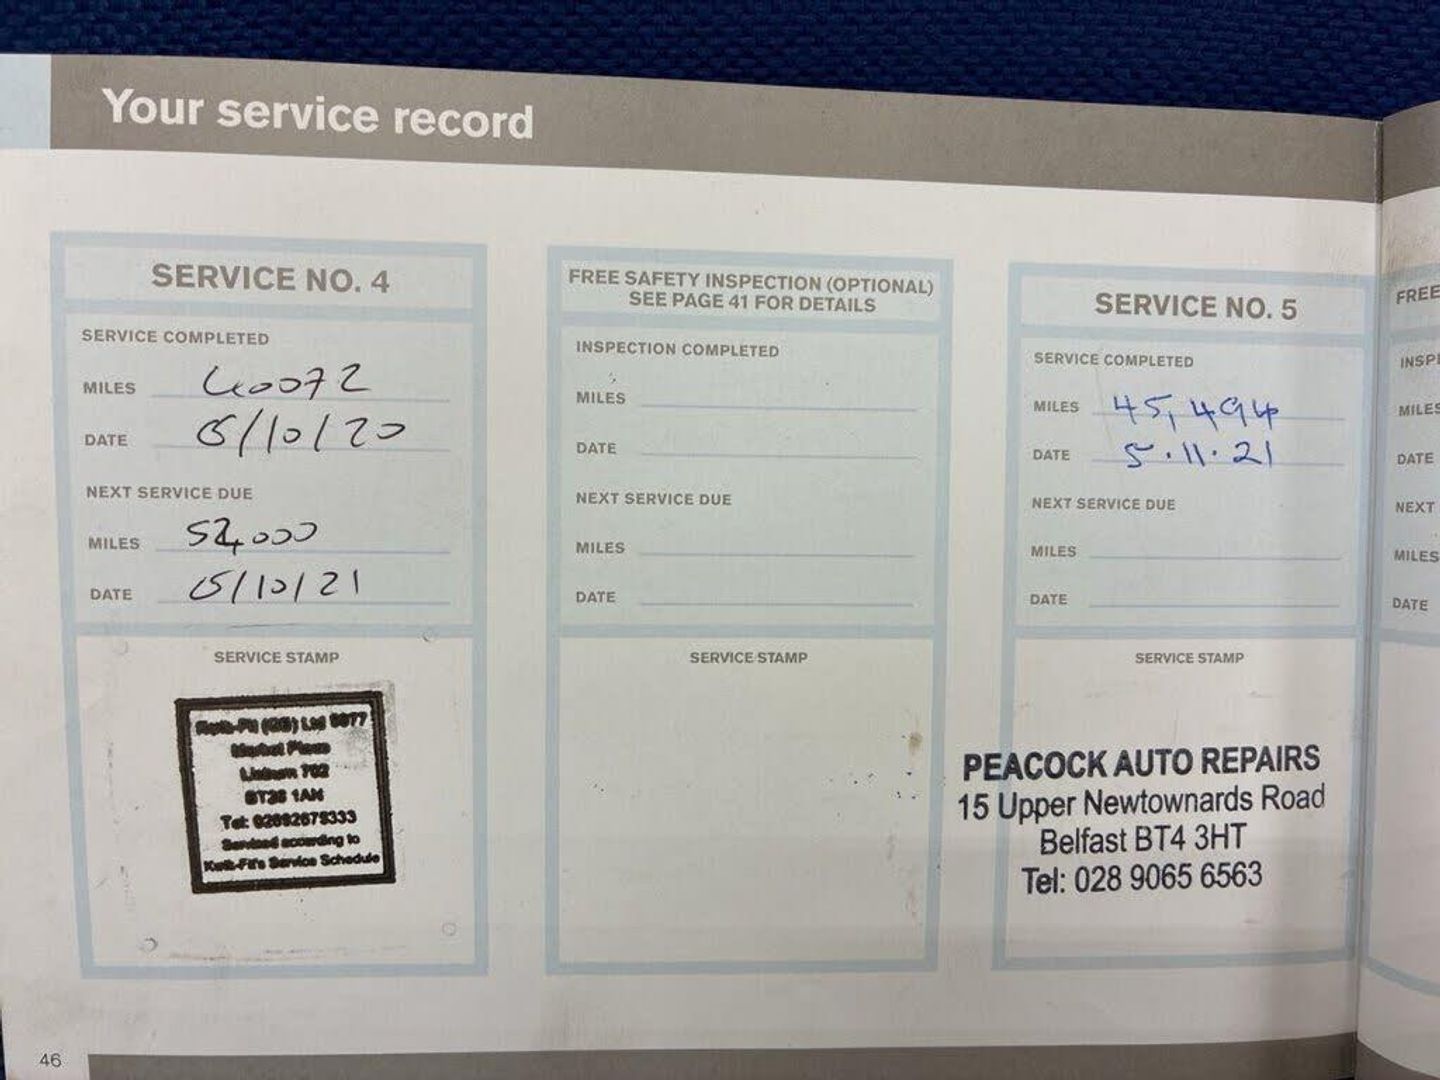 Your service record
SERVICE NO. 4
SERVICE COMPLETED
MILES 40072
DATE 15/10/20
NEXT SERVICE DUE
MILES 52,000
DATE 15/10/21
SERVICE STAMP
Kwik-Fit (GB) Ltd
Market Place
Lisburn 702
BT28 1AN
Tel: 02892678333
Serviced according to
Kwik-Fit's Service Schedule
FREE SAFETY INSPECTION (OPTIONAL)
SEE PAGE 41 FOR DETAILS
INSPECTION COMPLETED
MILES
DATE
NEXT SERVICE DUE
MILES
DATE
SERVICE STAMP
SERVICE NO. 5
SERVICE COMPLETED
MILES 45,494
DATE 5.11.21
NEXT SERVICE DUE
MILES
DATE
SERVICE STAMP
PEACOCK AUTO REPAIRS
15 Upper Newtownards Road
Belfast BT4 3HT
Tel: 028 9065 6563
FREE
INSPE
MILES
DATE
NEXT
MILES
DATE
46